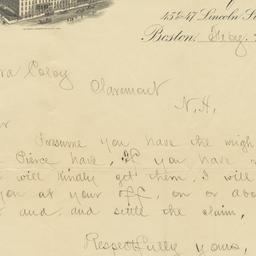 45 & 47 Lincoln S
Boston,
ra Colby
Claremont
N.H,
r
I presume you have the
Pierce have, If you have
will kindly get them, I will
you at your off, on or abo
and and settle the claim,
Respectfully yours,